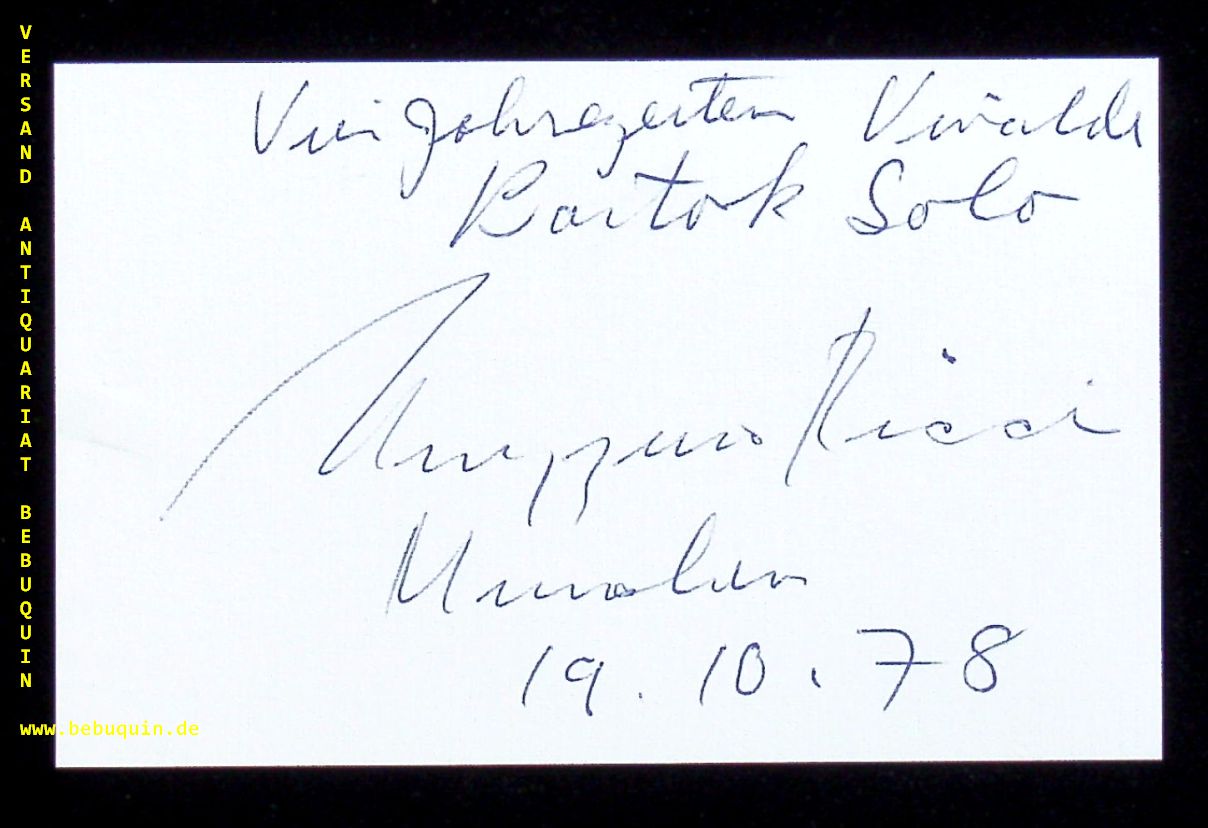 Vier Jahreszeiten Vivaldi
Bartok Solo
Ruggiero Ricci
München
19.10.78
VERSAND ANTIQUARIAT BEBUQUIN
www.bebuquin.de